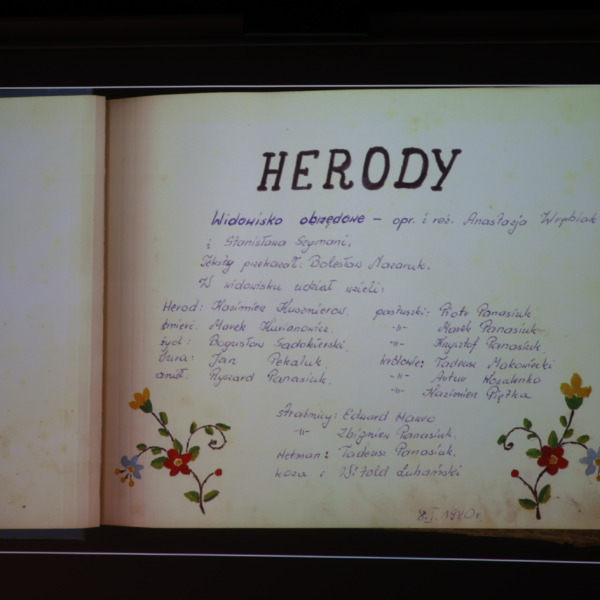 HERODY
Widowisko obrzędowe - opr. i reż. Anastazja Wrębiak
i Stanisława Szymani.
Teksty przekazał: Bolesław Nazaruk.
W widowisku udział wzieli:
Herod: Kazimierz
śmierć: Marek Kurianowicz.
żyd: Bogusław Sadokierski
Tura: Jan Pekaluk.
anioł: Ryszard Panasiuk.
pastuszki: Piotr Panasiuk
-"- Marek Panasiuk
-"- Krzysztof Panasiuk
królowie: Tadeusz Makowiecki
-"- Artur Kozalenko
-"- Kazimierz
strażnicy: Edward
-"- Zbigniew Panasiuk.
Hetman: Tadeusz Panasiuk.
koza : Witold Lubański